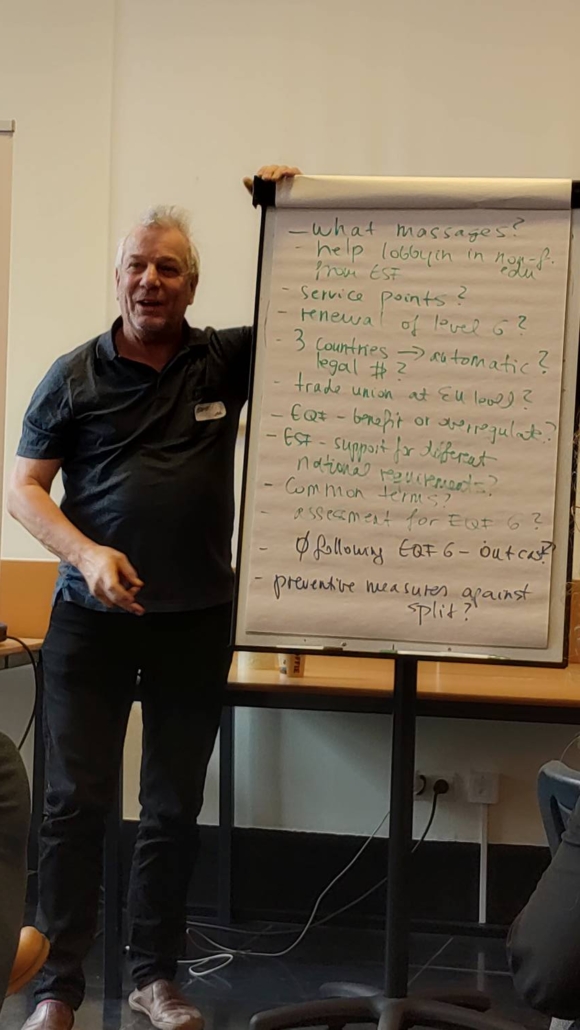 - what massages?
- help lobbyin in non-f.
from ESF edu
- service points?
- renewal of level 6?
- 3 countries → automatic?
legal #?
- trade union at EU level?
- EQF - benefit or overregulate?
- ESF - support for diferent
national requirements?
- Common terms?
- assessment for EQF 6?
- Ø following EQF 6 - outcast?
- preventive measures against
split?